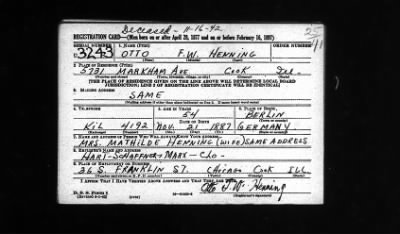 Deceased - 11-16-42
REGISTRATION CARD—(Men born on or after April 28, 1877 and on or before February 16, 1897)
SERIAL NUMBER 1. NAME (Print) ORDER NUMBER
3243 OTTO F.W. HENNING
2. PLACE OF RESIDENCE (Print)
5731 MARKHAM AVE COOK Ill
[THE PLACE OF RESIDENCE GIVEN ON THE LINE ABOVE WILL DETERMINE LOCAL BOARD
JURISDICTION; LINE 2 OF REGISTRATION CERTIFICATE WILL BE IDENTICAL]
3. MAILING ADDRESS
SAME
4. TELEPHONE 5. AGE IN YEARS 6. PLACE OF BIRTH
54 BERLIN
KIL 4192 NOV. 21 1887 GERMANY
7. NAME AND ADDRESS OF PERSON WHO WILL ALWAYS KNOW YOUR ADDRESS
MRS. MATHILDE HENNING (WIFE) SAME ADDRESS
8. EMPLOYER'S NAME AND ADDRESS
HART-SCHAFFNER & MARX - CHO -
9. PLACE OF EMPLOYMENT OR BUSINESS
36 S. FRANKLIN ST. Chicago Cook Ill
I AFFIRM THAT I HAVE VERIFIED ABOVE ANSWERS AND THAT THEY ARE TRUE.
Otto F. W. Henning